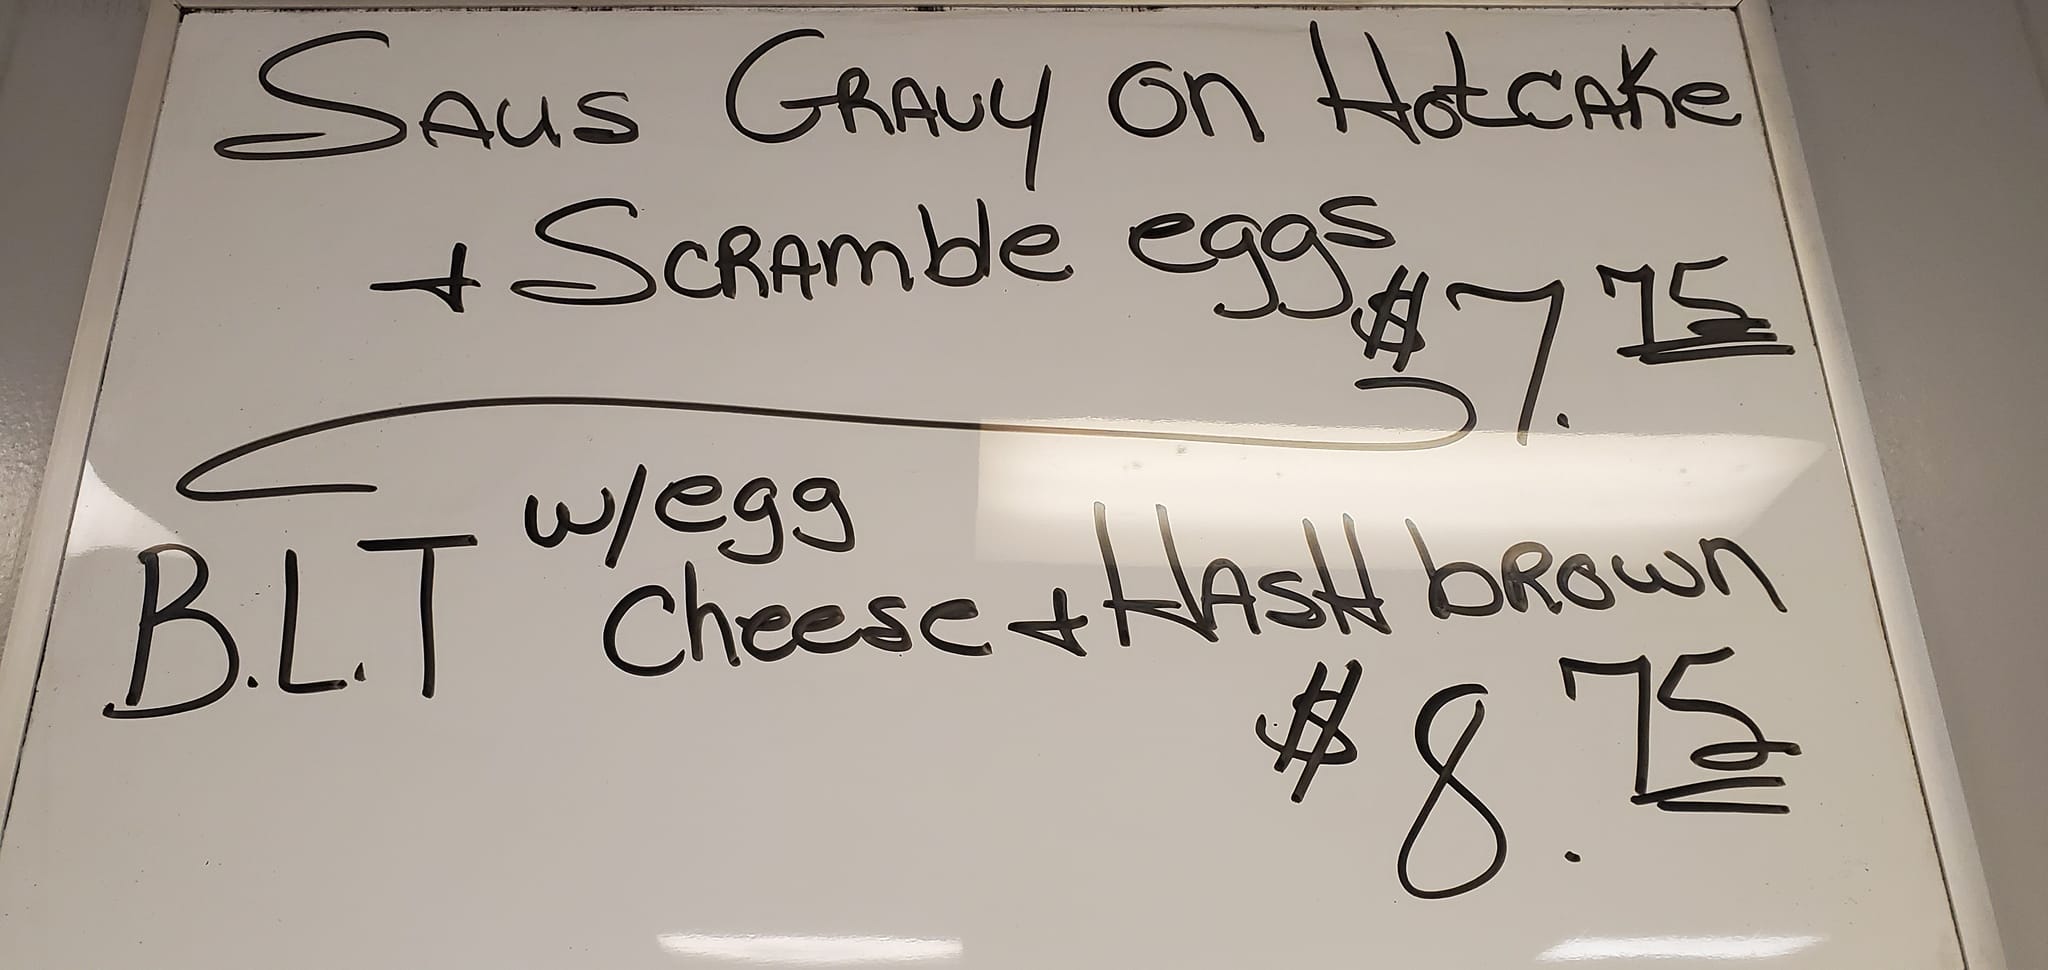 Saus Gravy on Hotcake
+ Scramble eggs
$7.75
B.L.T w/egg
cheese + Hash brown
$8.75